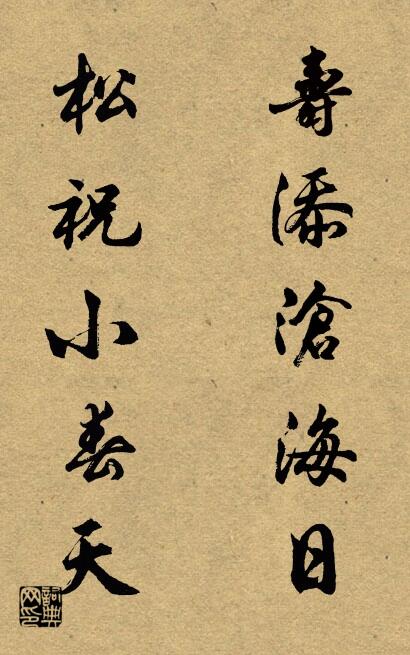 壽添滄海日
松祝小春天
詞典網印